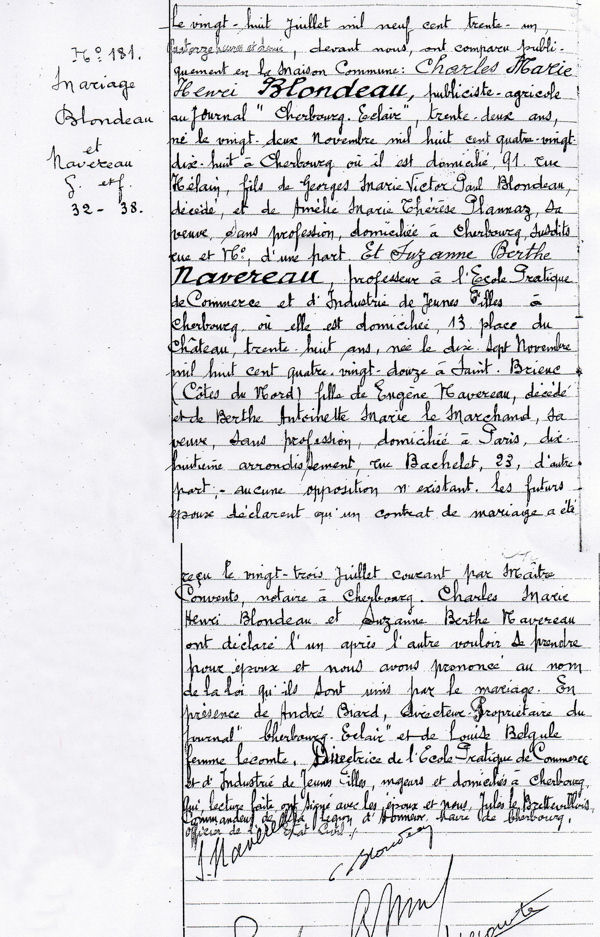 N° 181.
Mariage
Blondeau
et
Navereau
G. et f.
32 - 38.
Le vingt-huit Juillet mil neuf cent trente-un
quatorze heures et demie, devant nous, ont comparu publi-
quement en la Maison Commune: Charles Marie
Henri Blondeau, publiciste-agricole
au Journal "Cherbourg-Eclair", trente-deux ans,
né le vingt-deux Novembre mil huit cent quatre-vingt-
dix-huit à Cherbourg où il est domicilié, 91, rue
Hélain, fils de Georges Marie Victor Paul Blondeau,
décédé et de Amélie Marie Thérèse Plannaz, sa
veuve, sans profession, domiciliée à Cherbourg, susdits
rue et N°, d'une part. Et Suzanne Berthe
Navereau, professeur à l'Ecole Pratique
de Commerce et d'Industrie de Jeunes Filles à
Cherbourg, où elle est domiciliée, 13 place du
Château, trente-huit ans, née le dix-sept Novembre
mil huit cent quatre-vingt-douze à Saint-Brieuc
(Côtes du Nord) fille de Eugène Navereau, décédé
et de Berthe Antoinette Marie le Marchand, sa
veuve, sans profession, domiciliée à Paris, dix-
huitième arrondissement, rue Bachelet, 23, d'autre
part - aucune opposition n'existant. Les futurs
époux déclarent qu'un contrat de mariage a été
reçu le vingt-trois Juillet courant par Maître
Convents, notaire à Cherbourg. Charles Marie
Henri Blondeau et Suzanne Berthe Navereau
ont déclaré l'un après l'autre vouloir se prendre
pour époux et nous avons prononcé au nom
de la loi qu'ils sont unis par le mariage. En
présence de André Biard, Directeur-Propriétaire du
Journal "Cherbourg-Eclair" et de Louise Belgule
femme Lecomte, Directrice de l'Ecole Pratique de Commerce
et d'Industrie de Jeunes Filles, majeurs et domiciliés à Cherbourg,
qui, lecture faite ont signé avec les époux et nous, Jules le Brettevillois,
Commandeur de la Légion d'Honneur, Maire de Cherbourg,
Officier de l'Etat Civil.
S. Navereau
C Blondeau
Lecomte